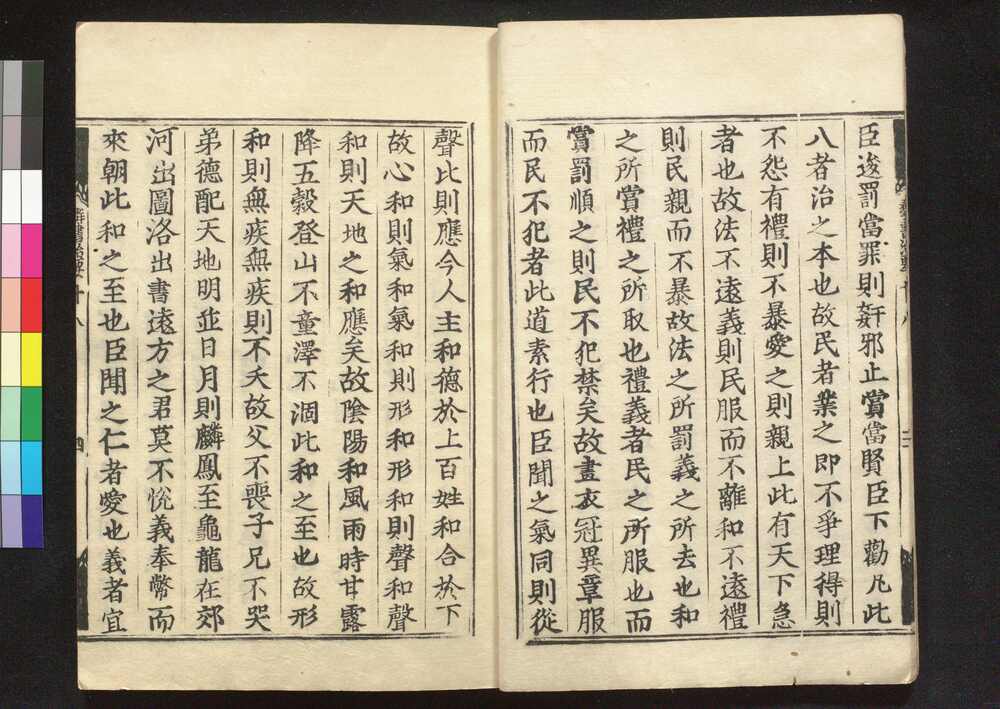 臣逡罰當罪則姧邪止賞當賢臣下勸凡此
八者治之本也故民者業之即不爭理得則
不怨有禮則不暴愛之則親上此有天下急
者也故法不遠義則民服而不離和不遠禮
則民親而不暴故法之所罰義之所去也和
之所賞禮之所取也禮義者民之所服也而
賞罰順之則民不犯禁矣故畫衣冠異章服
而民不犯者此道素行也臣聞之氣同則從
聲比則應今人主和德於上百姓和合於下
故心和則氣和氣和則形和形和則聲和聲
和則天地之和應矣故陰陽和風雨時甘露
降五穀登山不童澤不涸此和之至也故形
和則無疾無疾則不夭故父不喪子兄不哭
弟德配天地明並日月則麟鳳至龜龍在郊
河出圖洛出書遠方之君莫不悅義奉幣而
來朝此和之至也臣聞之仁者愛也義者宜
群書治要十八
四